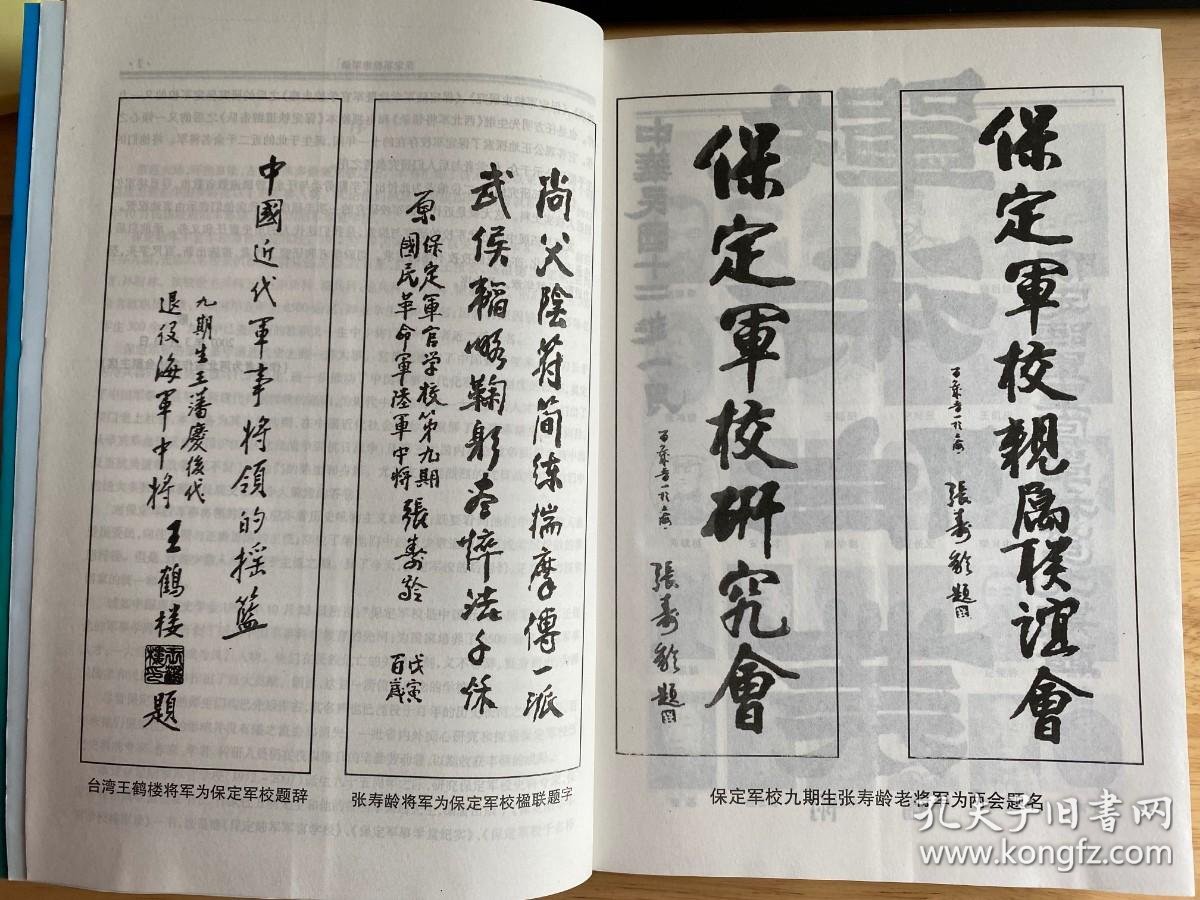 尚父陰符简练揣摩傳一派
武侯韜略鞠躬尽瘁法千秋
保定軍官学校第九期
原國民革命軍陸軍中將張寿龄
戊寅
百歲
张寿龄将军为保定军校楹联题字
中國近代軍事将領的摇籃
九期生王藩慶後代
退役海軍中将王鶴楼
題
台湾王鹤楼将军为保定军校题辞
保定軍校親属联誼會
張寿龄题
保定軍校研究會
張寿龄题
保定军校九期生张寿龄老将军为两会题名
孔夫子旧书网
www.kongfz.com